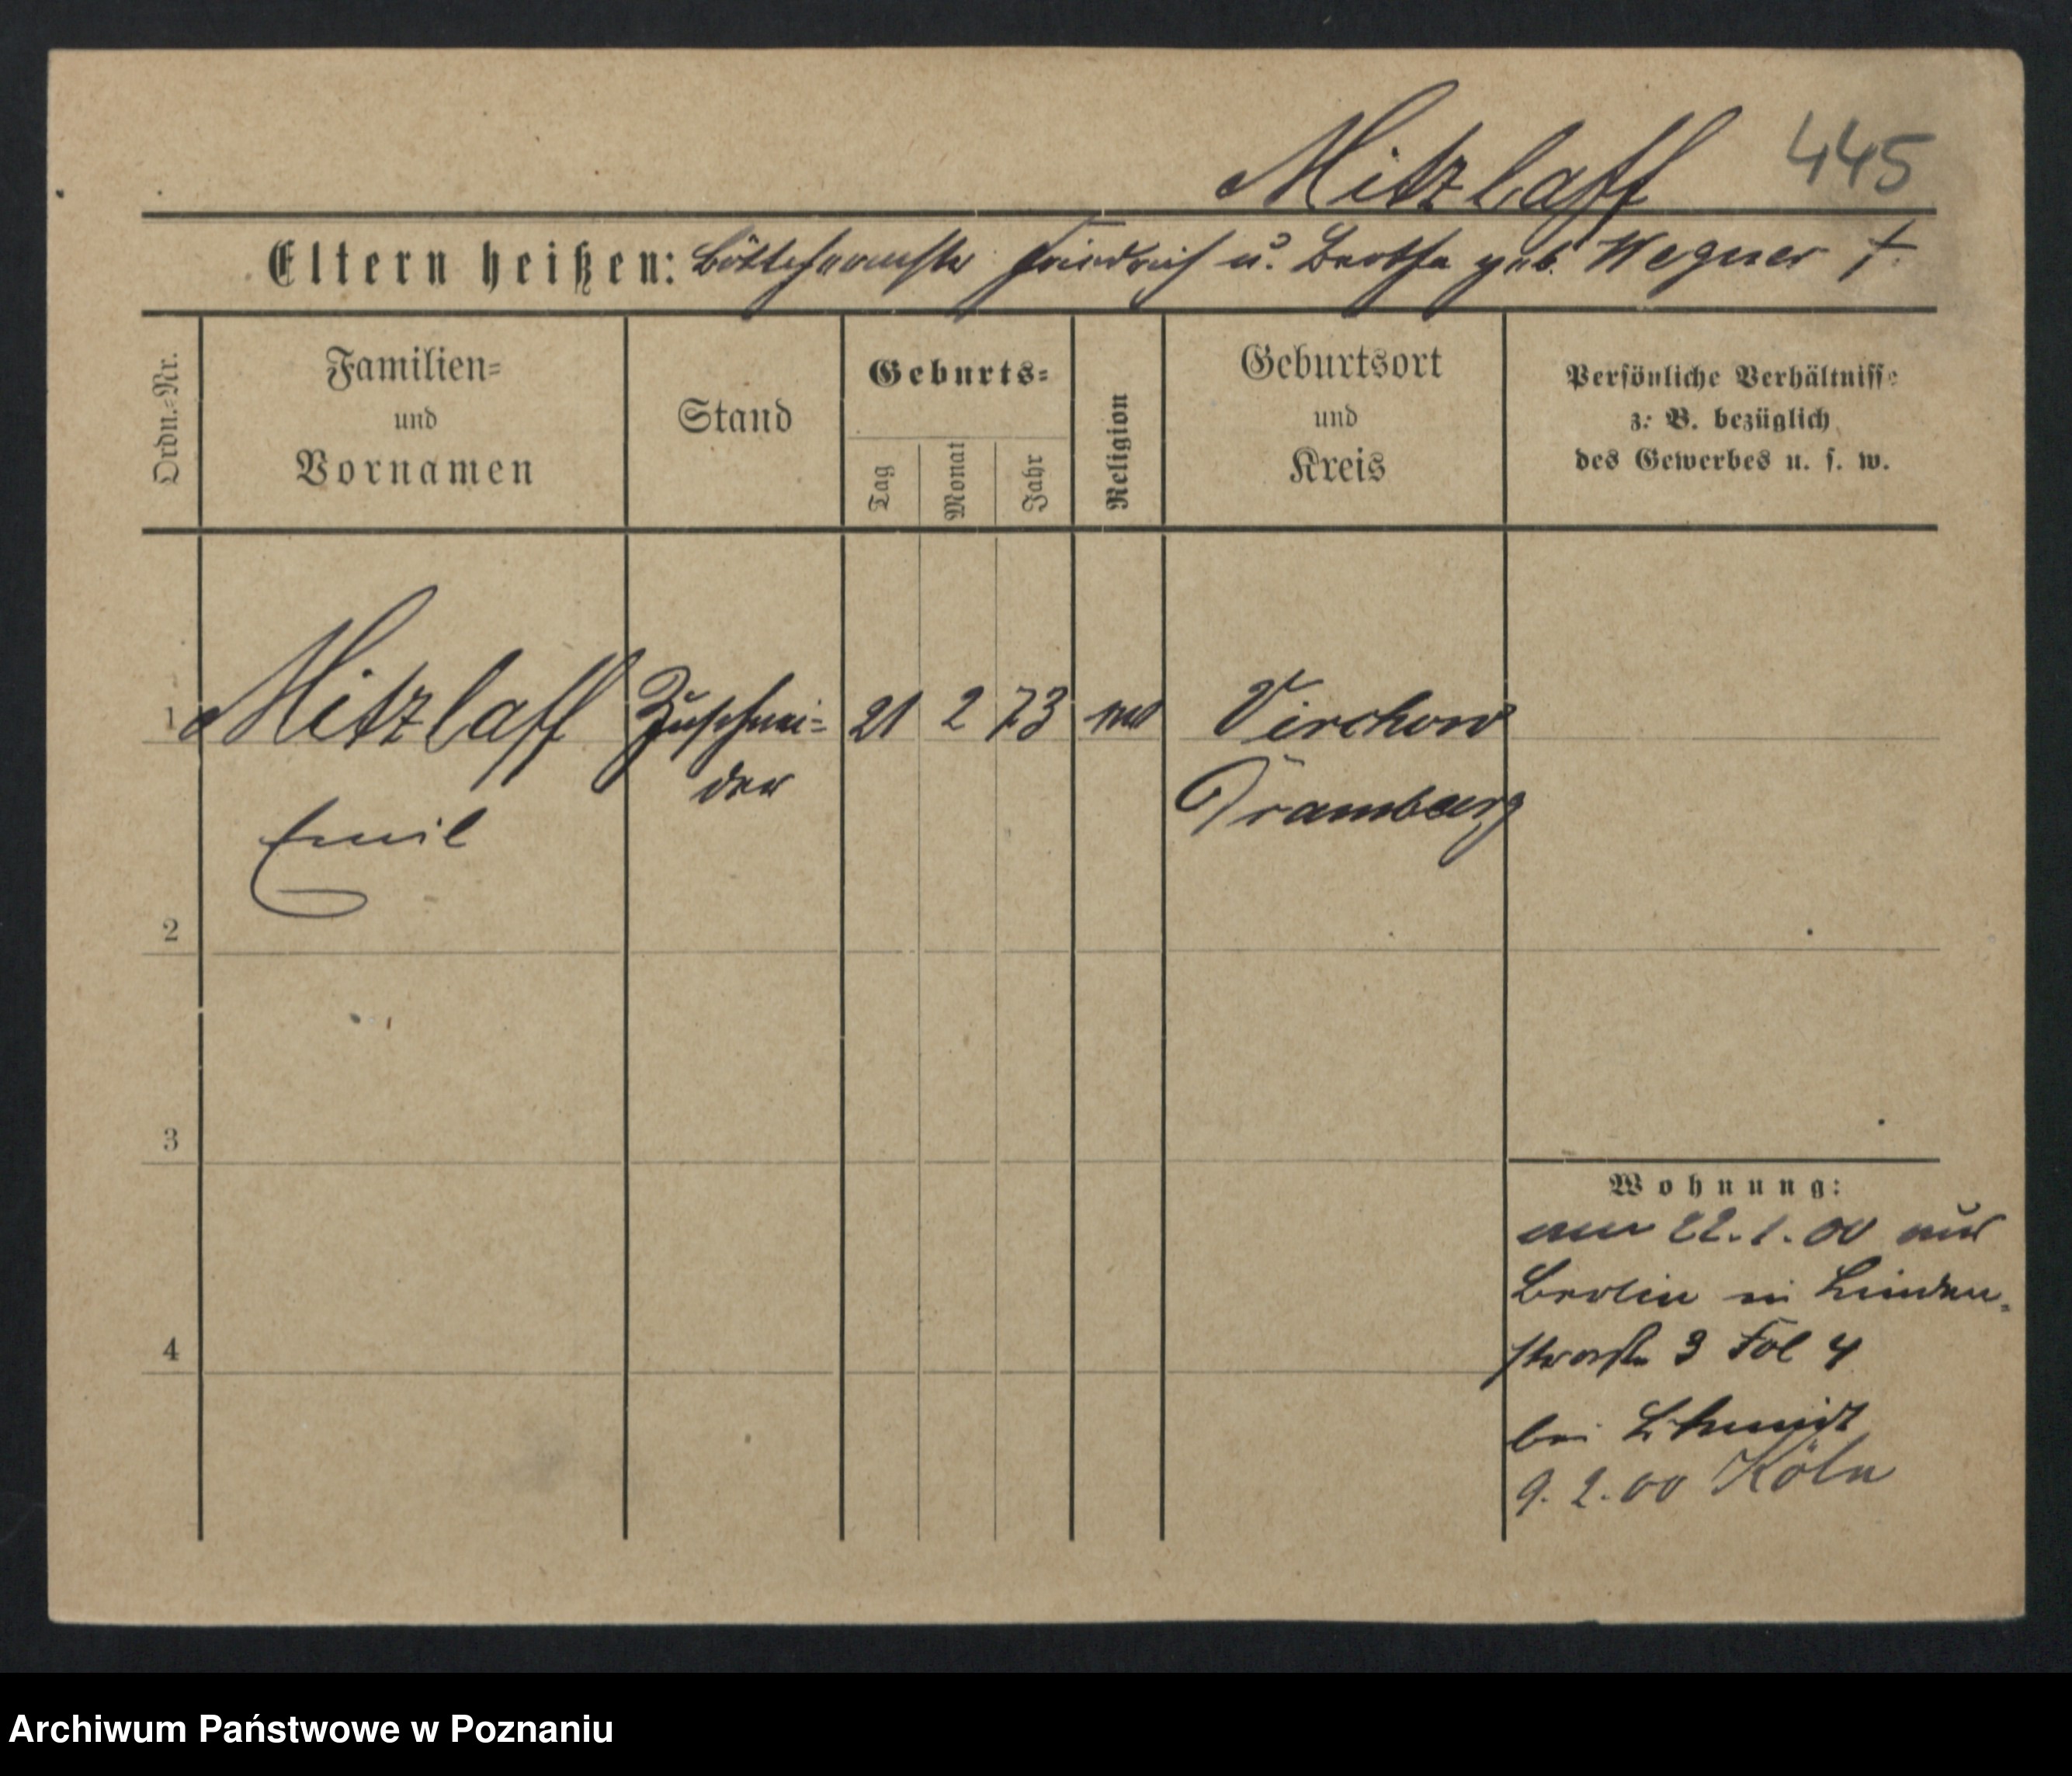 Mitzlaff 445
Eltern heißen: Böttchermstr Friedrich u. Bertha geb. Wegner †.
Ordn.=Nr.
Familien=
und
Vornamen
Stand
Geburts=
Tag
Monat
Jahr
Religion
Geburtsort
und
Kreis
Persönliche Verhältnisse
z. B. bezüglich
des Gewerbes u. s. w.
1 Mitzlaff Zuschnei= 21 2 73 Virchow
der Dramburg
Emil
2
3
4
Wohnung:
am 22.1.00 aus
Berlin in Linden-
strasse 3 Fol 4
bei Schmidt
9.2.00 Köln
Archiwum Państwowe w Poznaniu